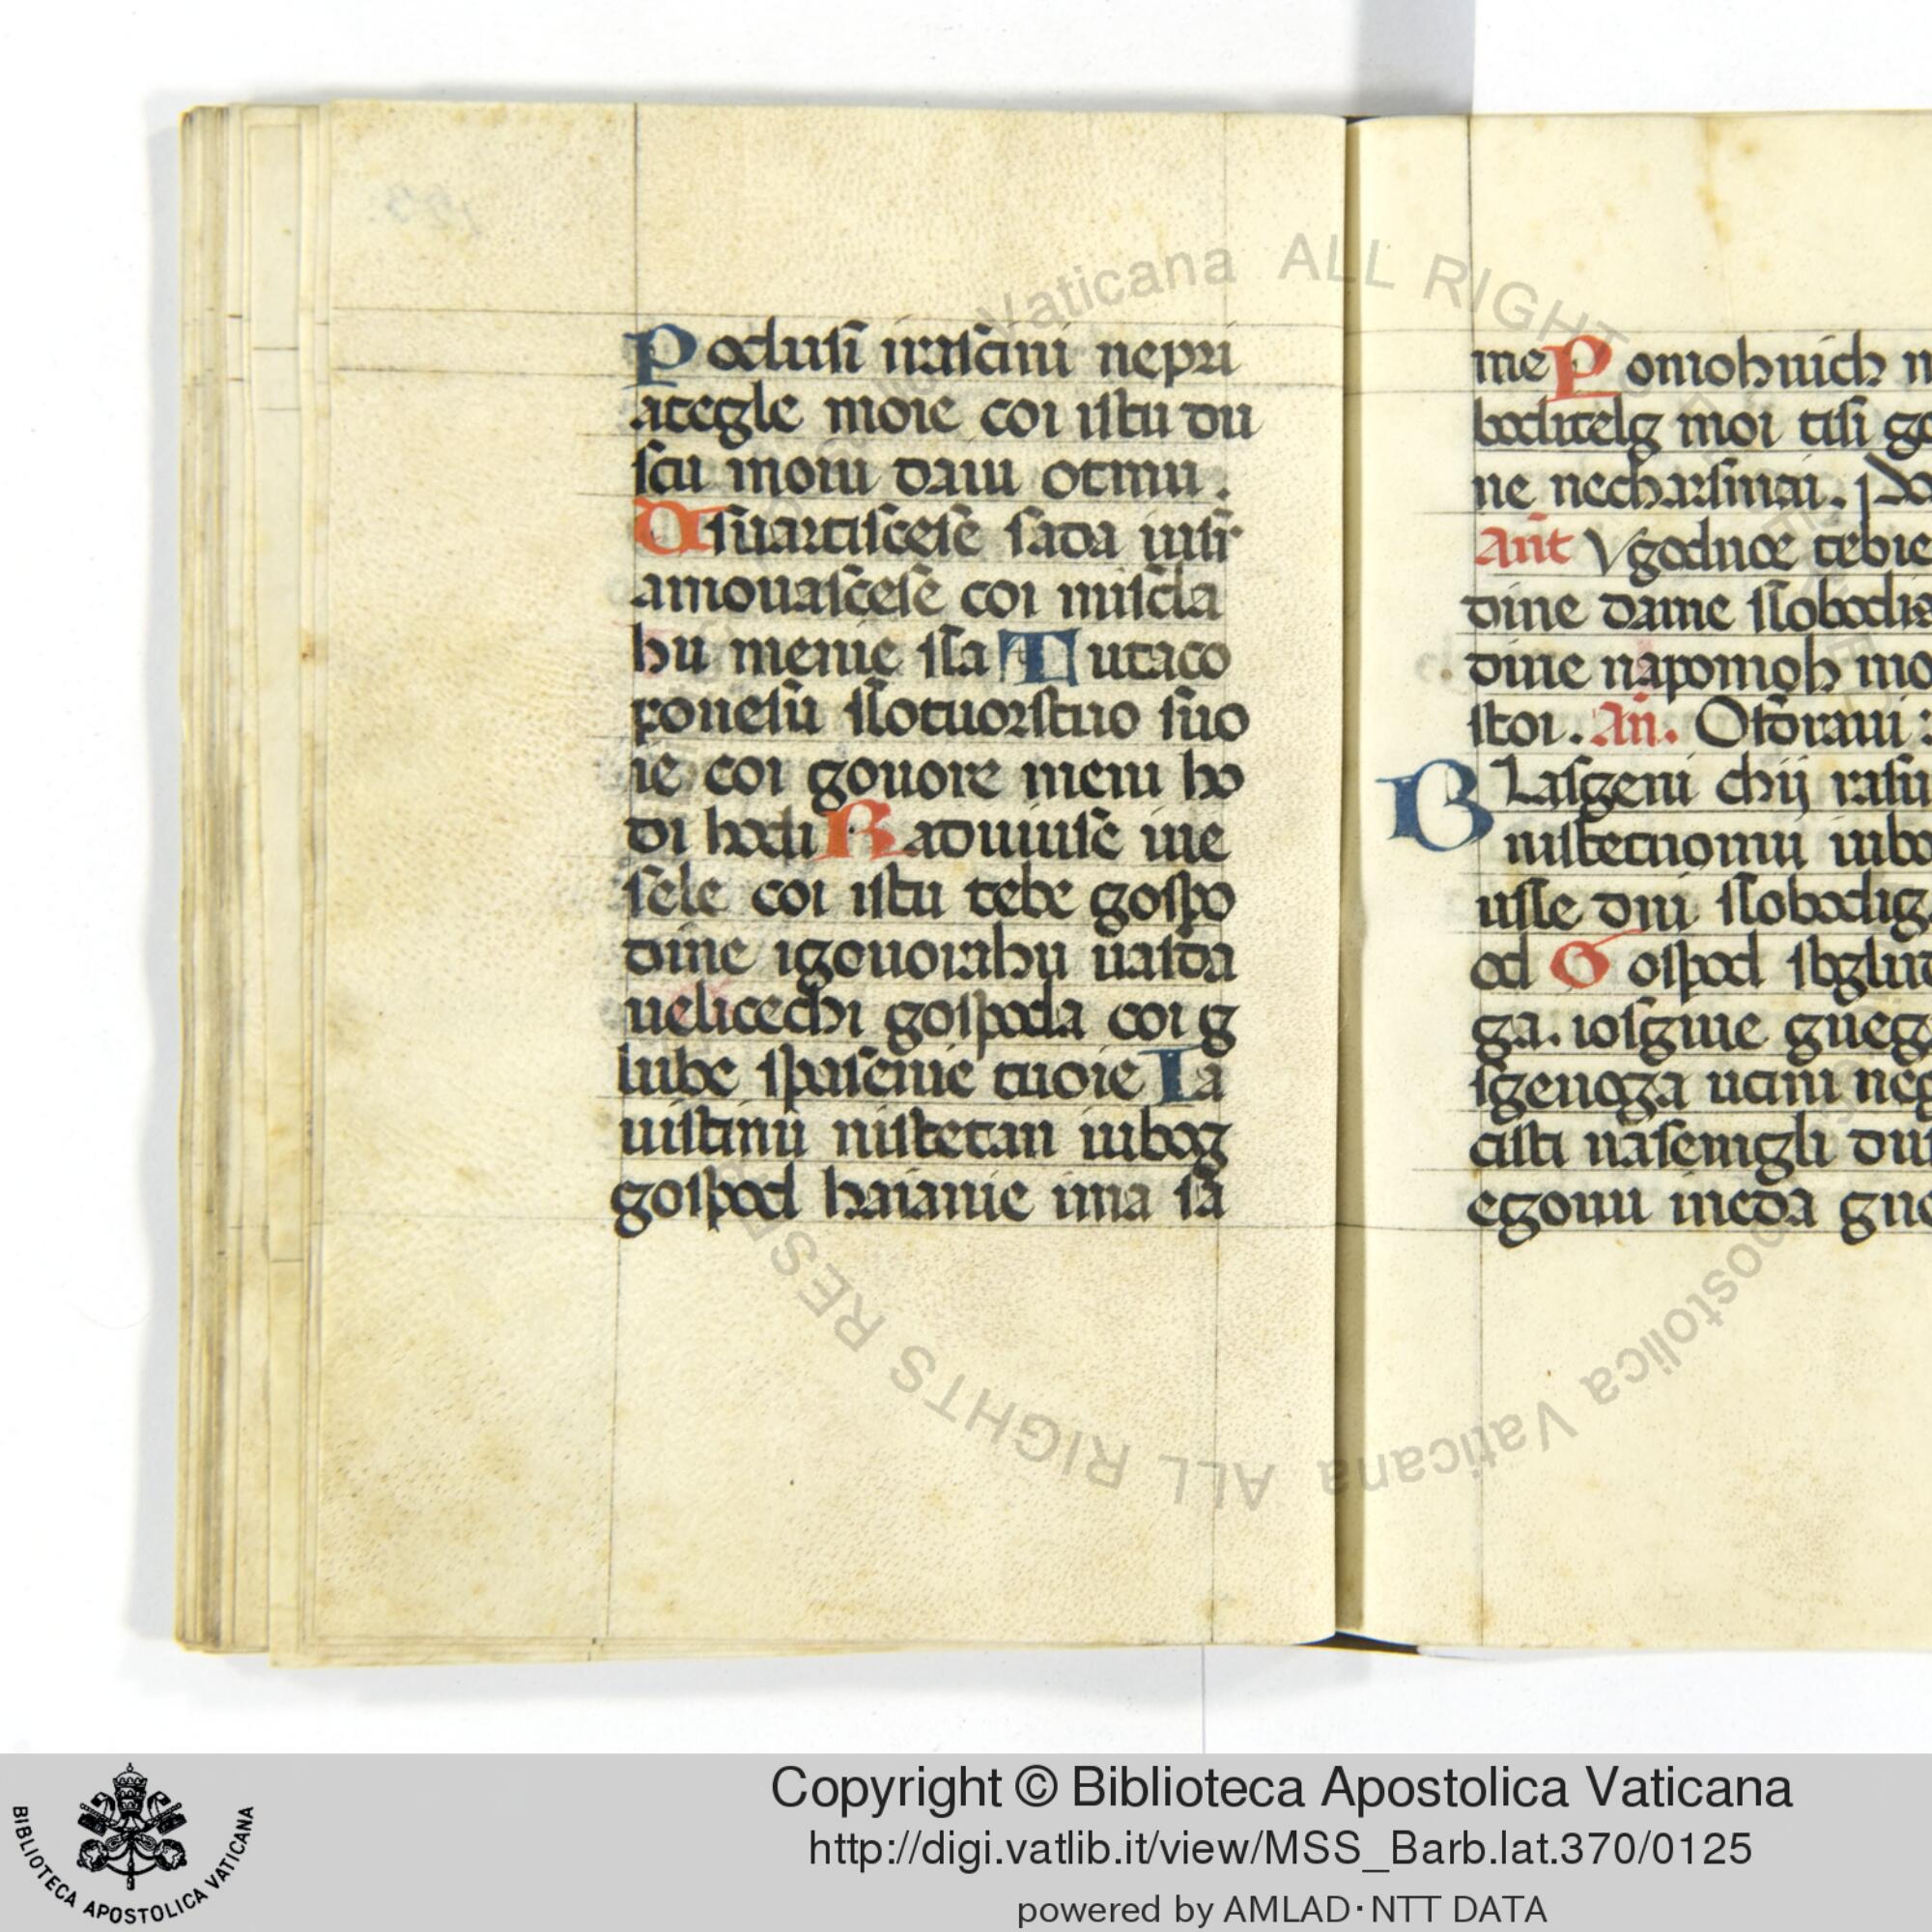 Podlusi irasctini nepri
ategle moie coi istu du
scu moiu daiu otmu.
Dasuarctiscese sada iusr
amouascese coi miscla
hu menie sla Tutaco
ponesu slotuorstuo suo
ie coi gouore meni ho
di hodi Raduiuise iue
sele coi istu tebe gospo
dine igouorahu uasda
uelicechi gospoda coi g
lube spasenie tuoie La
uistinu nistetan iubog
gospod haianie ima sa
me Pomohnich m
boditelg moi tisi go
ne necharsmai.
Ant Vgodnoe tebie
dine dame slobodis
dine napomoh mo
stoi. An. Osdraui
Blasgeni chij rasu
nistetnomu iubo
usle dni slobodig
od Gospod sbgliud
ga. iosgiue gneg
sgenoga uctini neg
ctisti nasemgli du
egouu meda gne
Vaticana ALL RIGHT
RESE
ALL RIGHTS
Apostolica Vaticana
BIBLIOTECA APOSTOLICA VATICANA
Copyright © Biblioteca Apostolica Vaticana
http://digi.vatlib.it/view/MSS_Barb.lat.370/0125
powered by AMLAD·NTT DATA